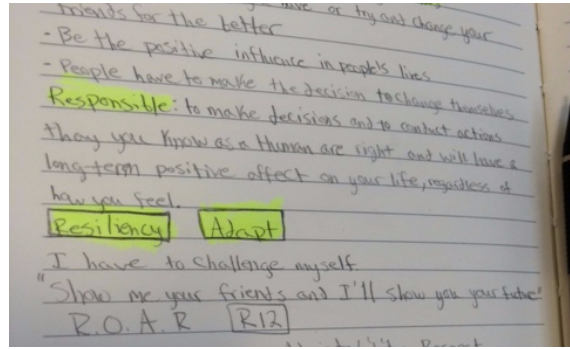 friends for the better or try and change your
- Be the positive influence in people's lives
- People have to make the decision to change themselves
Responsible: to make decisions and to conduct actions
thay you know as a Human are right and will have a
long-term positive affect on your life, regardless of
how you feel.
Resiliency Adapt
I have to challenge myself
"Show me your friends and I'll show you your future"
R.O.A.R R12